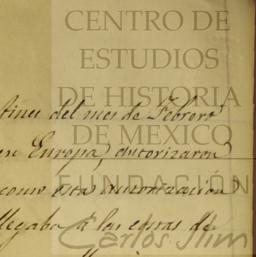 CENTRO DE
ESTUDIOS
DE HISTORIA
DE MEXICO
FUNDACIÓN
Carlos Slim
del mes de Febrero
en Europa, autorizaron
como esta autorizacion
llegaba á las